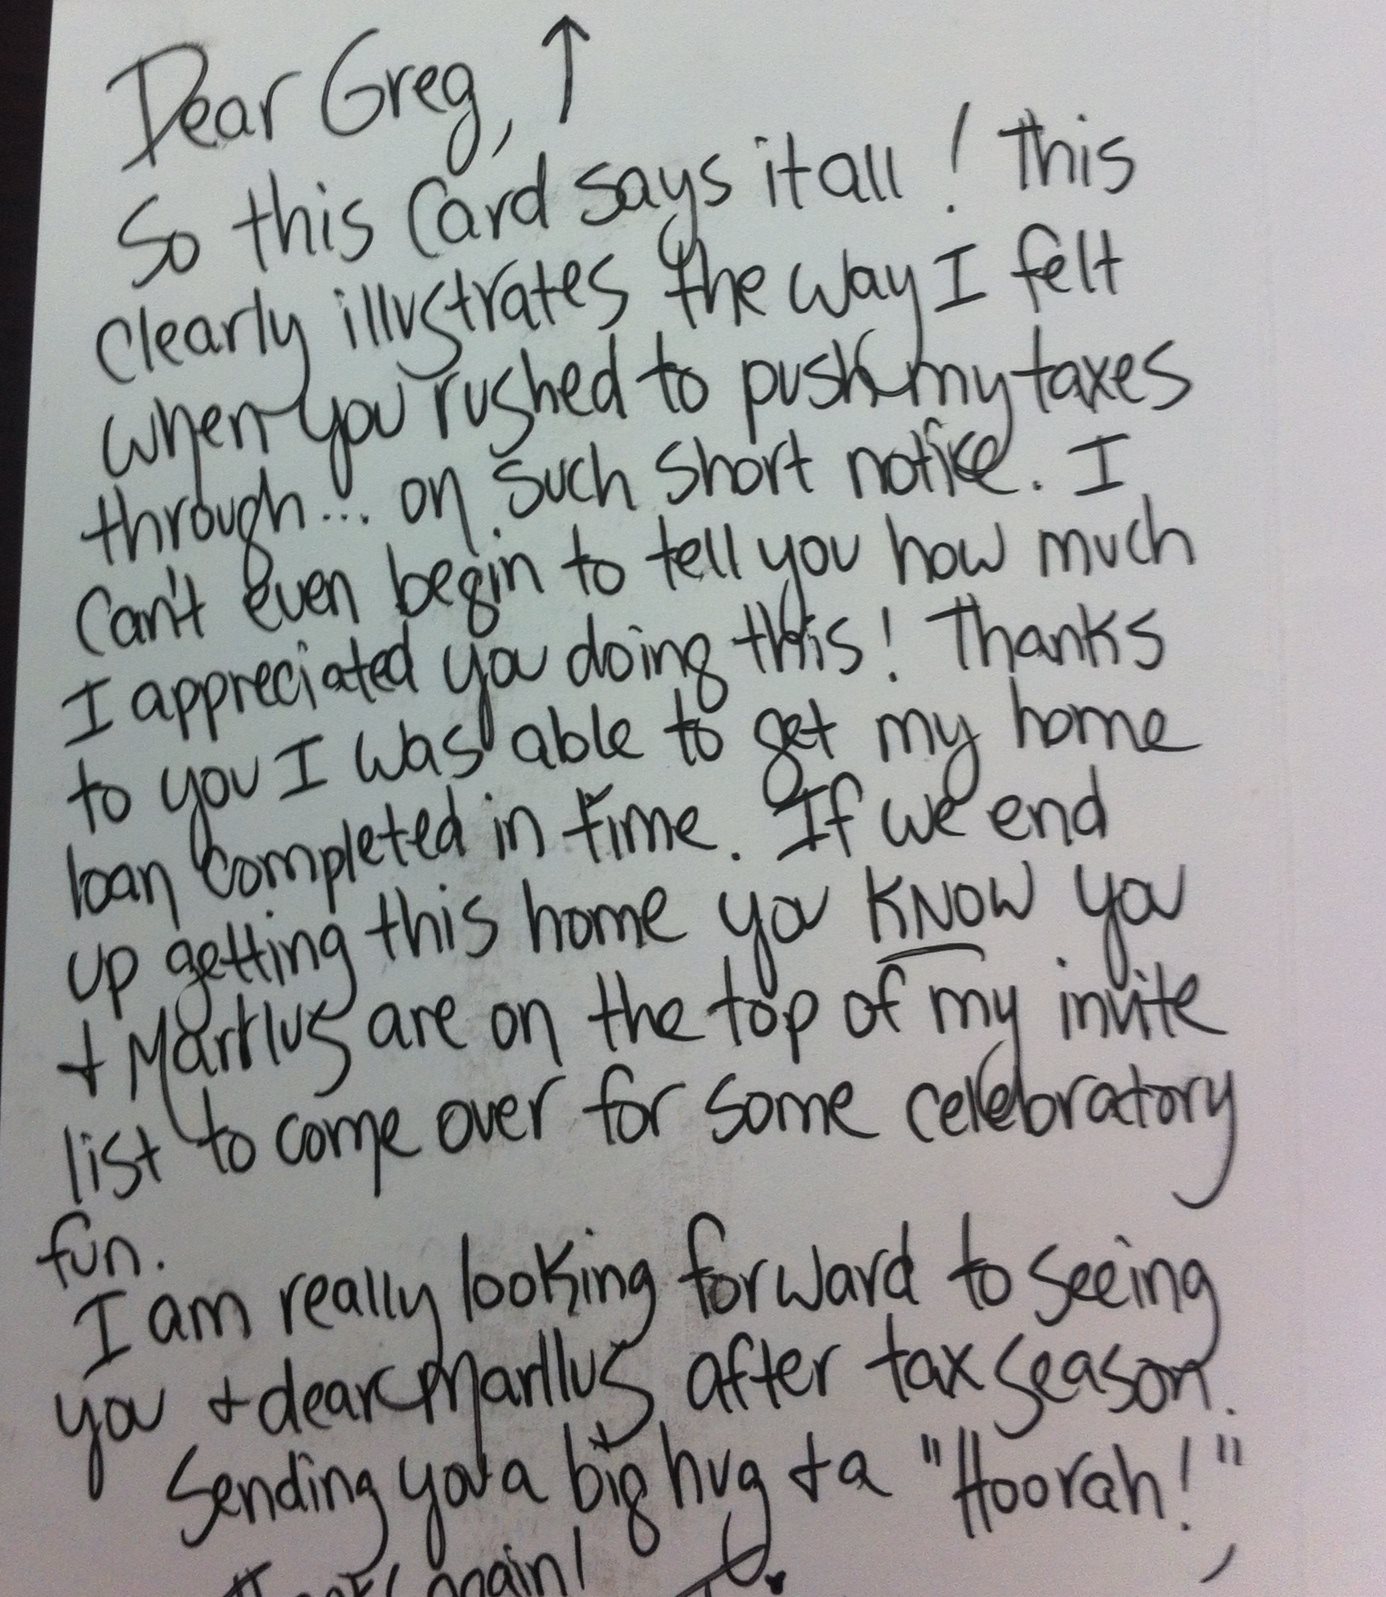 Dear Greg, ↑
So this Card says it all! This
clearly illustrates the way I felt
when you rushed to push my taxes
through... on such short notice. I
can't even begin to tell you how much
I appreciated you doing this! Thanks
to you I was able to get my home
loan completed in time. If we end
up getting this home you KNOW you
+ Marllus are on the top of my invite
list to come over for some celebratory
fun.
I am really looking forward to seeing
you + dear Marllus after tax season.
Sending you a big hug + a "Hoorah!"
again!